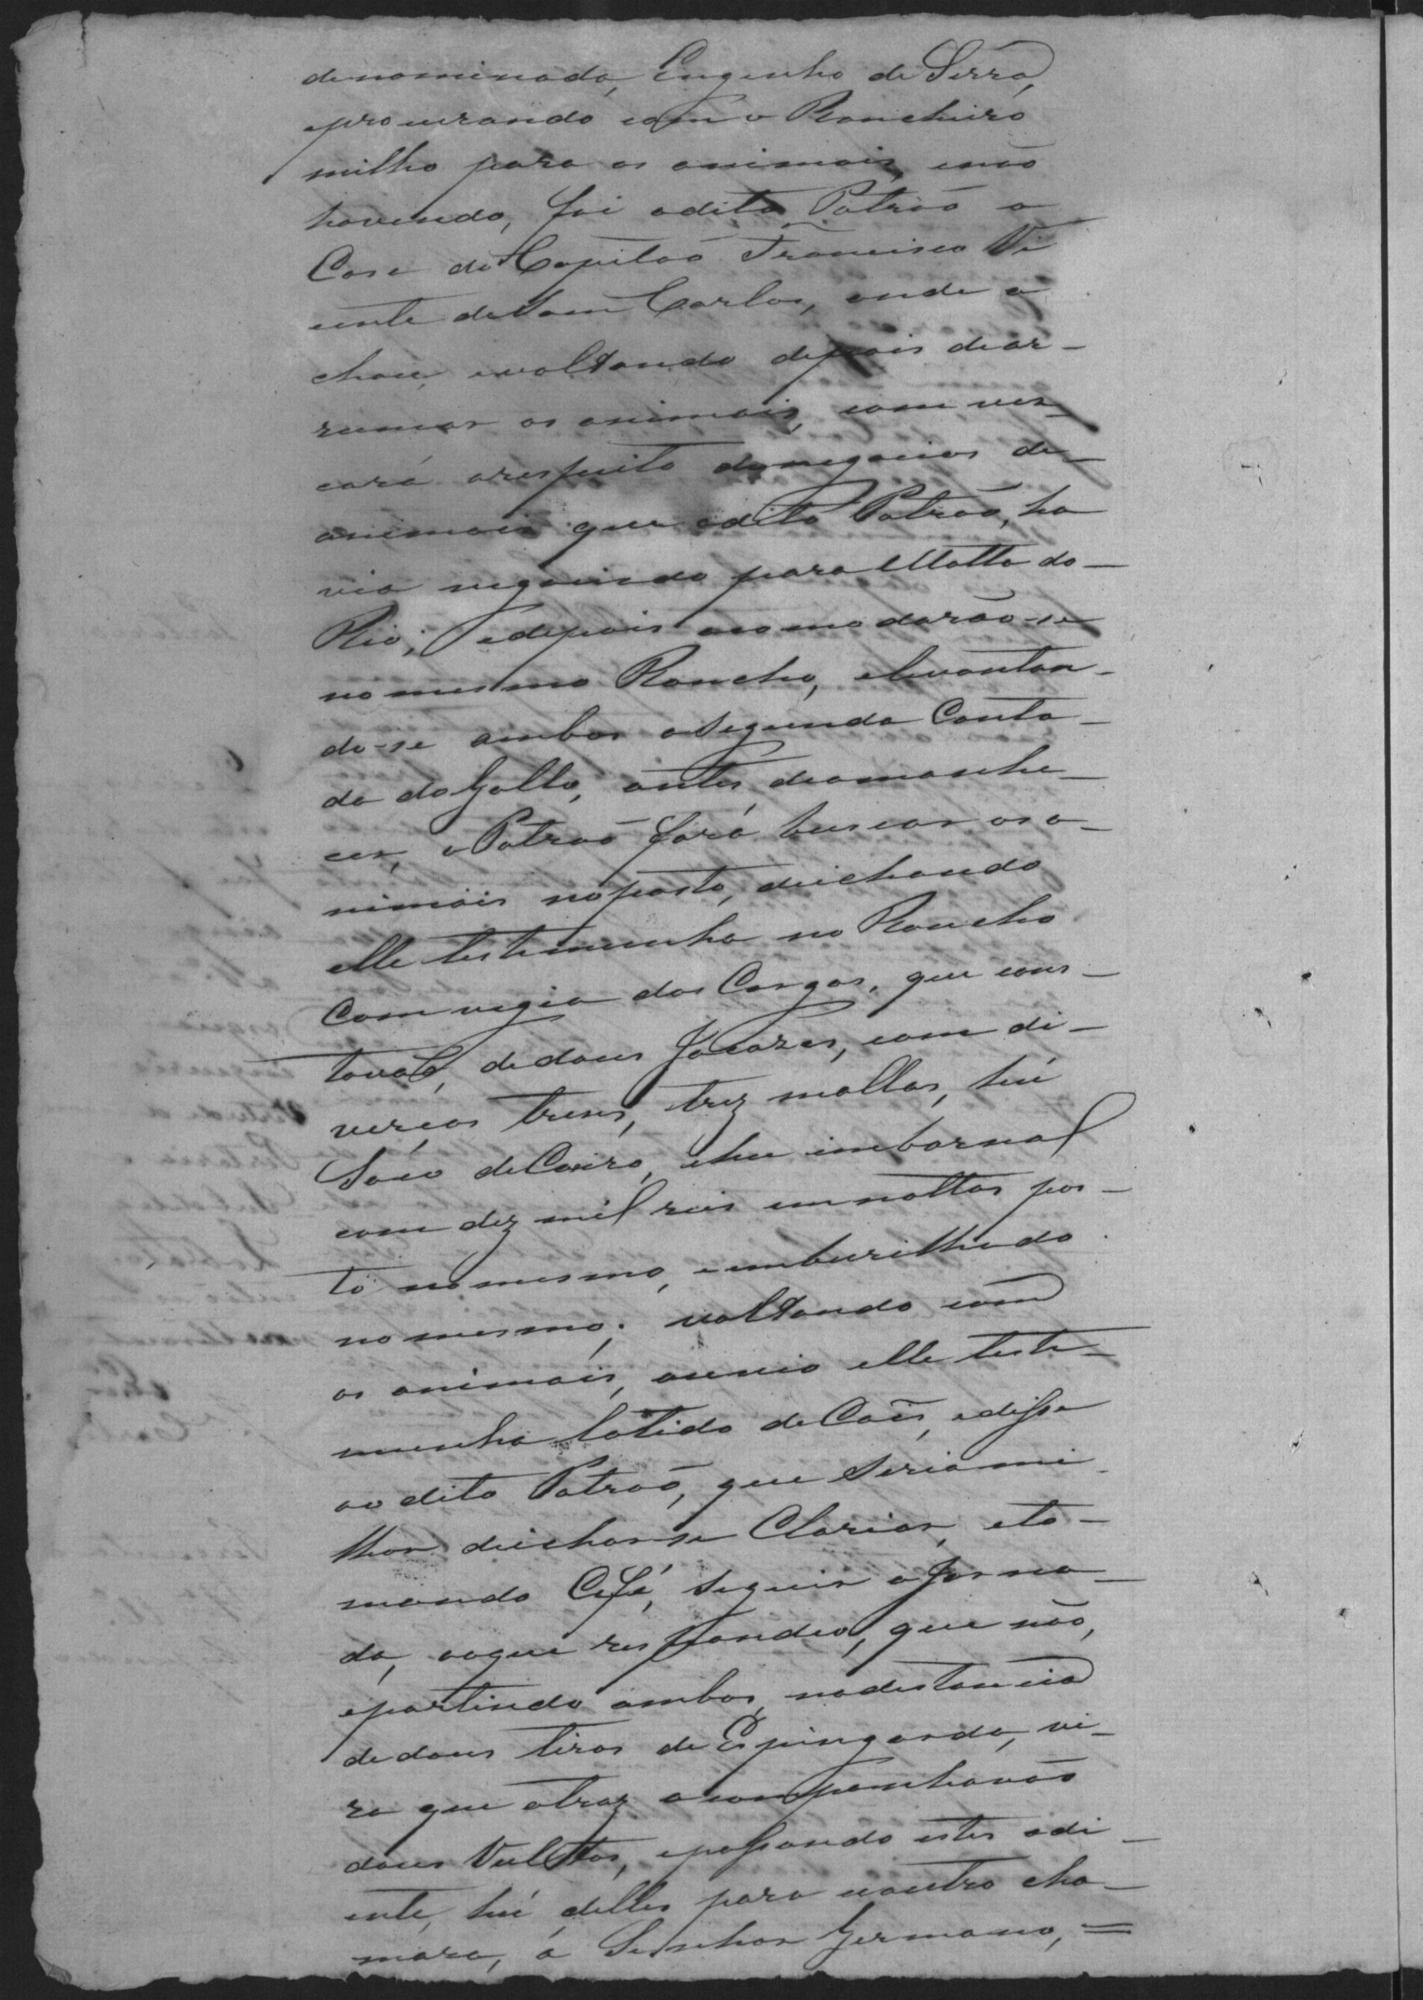 denominado, Engenho de Serra,
eprocurando com o Rancheiro
milho para os animais, enão
havendo, foi odito Patrão a
Casa do Capitão Francisco Vi
cente de Sam Carlos, onde a
chou, evoltando depois dear-
rumar os animais, comver-
cará arespeito denegocios de-
animais que odito Patrão, ha
via negociado para Matto do-
Rio; edepois acomodarão-se
nomesmo Rancho, elevantan-
do-se ambos aSegunda Canta-
da do Gallo, antes deamanhe-
cer, o Patrão fora buscar osa-
nimais nopasto, deichando
elle testemunha no Rancho
Com vegia das Cargas, que cons-
tava, dedous Jacazes, com di-
verços trens, trez mallas, hú
Saco deCouro, ehu imbornal
com dez mil reis em nottas pos-
to nomesmo, eemburilhado
nomesmo; voltando com
os animais, ouvio elle teste-
munha latido deCaẽs, edisse
ao dito Patraõ, que Seriami-
lhor deichar-se Clariar, eto-
mando Cafe, seguir aJorna-
da, aoque respondeo, que não,
epartindo ambos, nadistancia
dedous tiros de Espingarda, vi-
ra que atraz acompanhavão
dous Vultos, epassando estes adi-
ente, hú delles para ooutro cha-
mara, á Senhor Germano, =